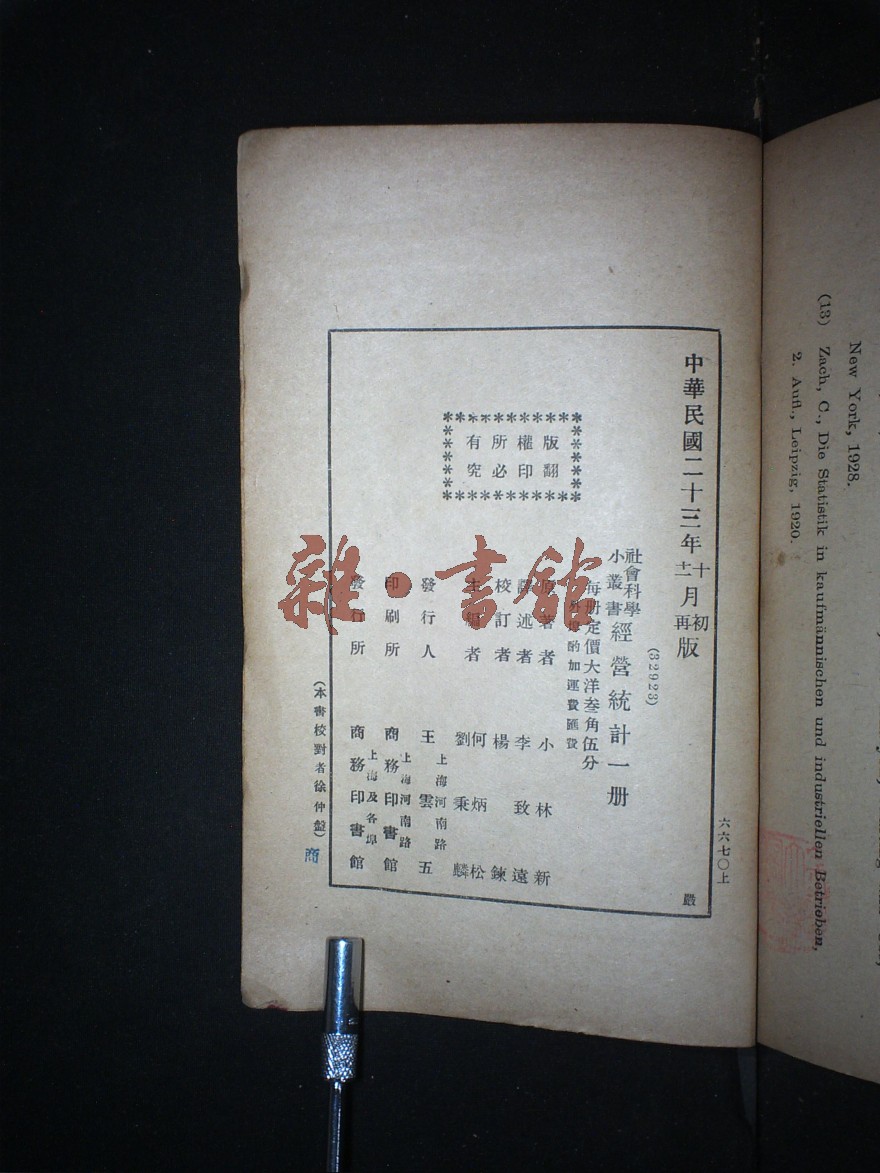 中華民國二十三年十月初版
十二月再版
六六七〇上
嚴
(32923)
社會科學小叢書
經營統計一册
每册定價大洋叁角伍分
外埠酌加運費匯費
版權所有
翻印必究
原著者 小林新
譯述者 李致遠
校訂者 楊鍊
主編者 何炳松 劉秉麟
發行人 王雲五
上海河南路
印刷所 商務印書館
上海河南路
發行所 商務印書館
上海及各埠
(本書校對者徐仲盤)
商
雜·書館
New York, 1928.
(13) Zach, C., Die Statistik in kaufmännischen und industriellen Betrieben,
2. Aufl., Leipzig, 1920.